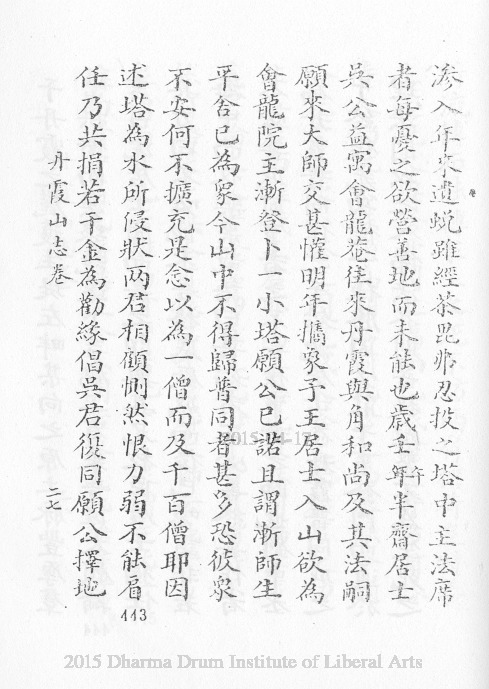 滲入年來遺蛻雖經茶毘弗忍投之塔中主法席
者每憂之欲營善地而未能也歲壬午年半齋居士
吳公益寓會龍菴往來丹霞與角和尚及其法嗣
願來大師交甚懽明年攜家子王居士入山欲為
會龍院主漸登卜一小塔願公已諾且謂漸師生
平舍己為眾今山中不得歸普同者甚多恐彼眾
不安何不擴充是念以為一僧而及千百僧耶因
述塔為水所侵狀兩君相顧惻然恨力弱不能肩
任乃共捐若干金為勸緣倡吳君復同願公擇地
丹霞山志卷 二七
113
2015 Dharma Drum Institute of Liberal Arts